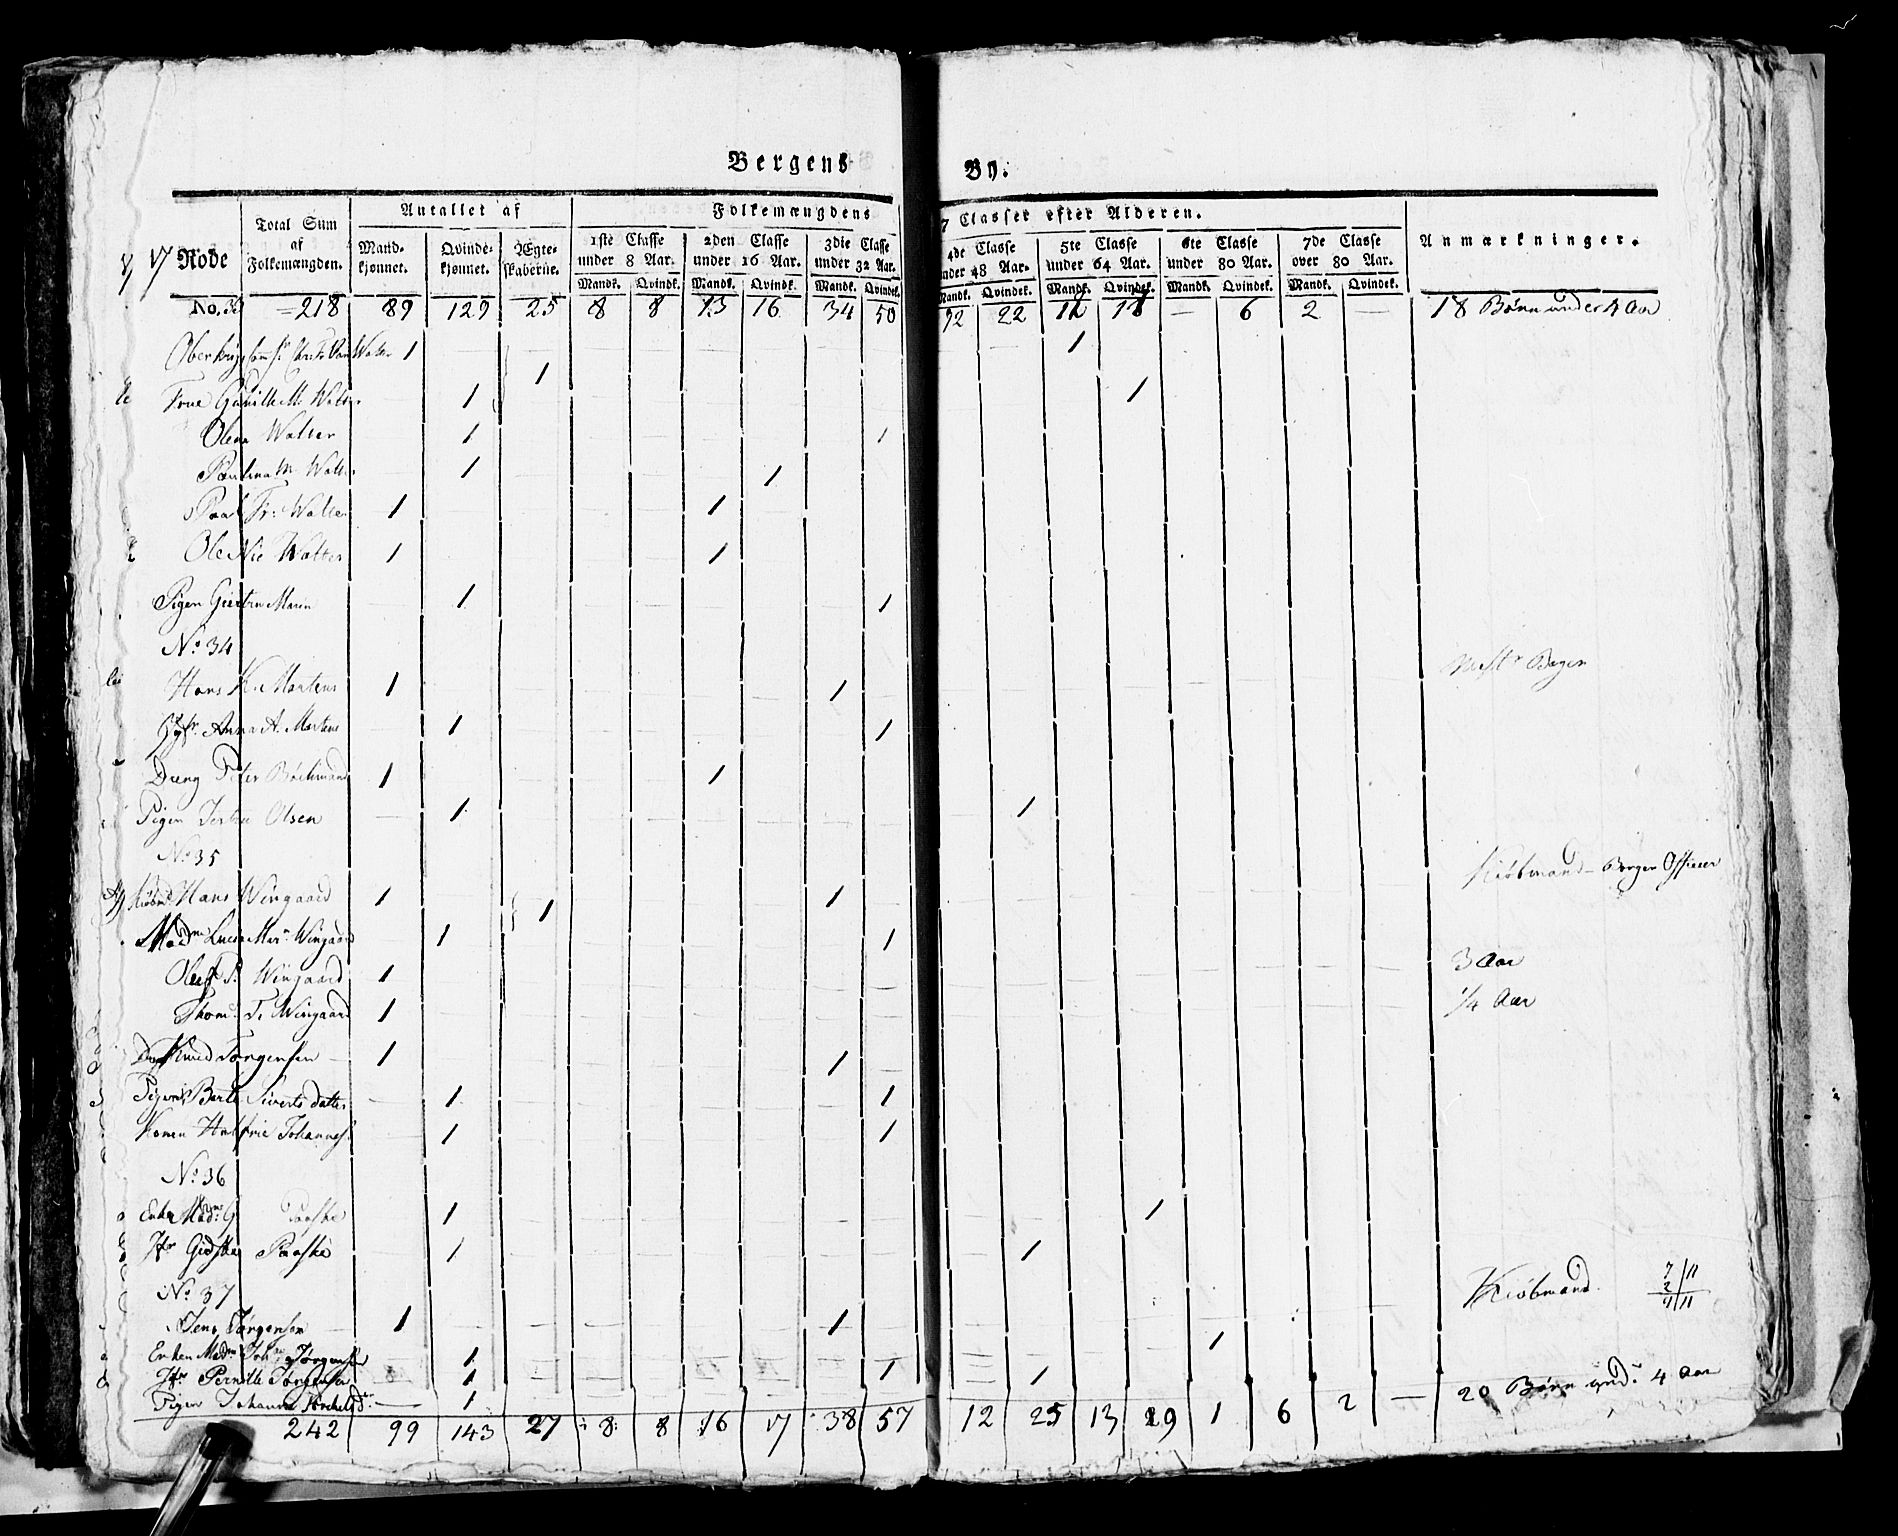 Bergens By.
17 Rode
Total Sum af Folkemængden.
Antallet af
Mandkjønnet. Qvindekjønnet. Ægteskaberne.
Folkemængdens 7 Classer efter Alderen.
1ste Classe under 8 Aar. 2den Classe under 16 Aar. 3die Classe under 32 Aar. 4de Classe under 48 Aar. 5te Classe under 64 Aar. 6te Classe under 80 Aar. 7de Classe over 80 Aar.
Mandk. Qvindk. Mandk. Qvindk. Mandk. Qvindek. Mandk. Qvindek. Mandk. Qvindek. Mandk. Qvindek. Mandk. Qvindek.
Anmærkninger.
218 89 129 25 8 8 13 16 34 50 12 22 — 6 2 — 18 Børn under 4 Aar
Walter 1 1
1
Frue Walter 1 1
Olena Walter 1 1
Walter 1 1
Paal Fr: Walter 1 1
Ole Nic Walter 1 1
Pigen Marin 1 1
No. 34
Hans Martens 1 1
Anna A. Martens 1 1
Dreng Peter 1 1
Pigen Olsen 1 1
No. 35
Kiøbmand - Borger Officeer
Kiøbmd. Hans Wingaard 1 1 1
Madme Mar. Wingaard 1 1
Wingaard 1 3 Aar
Thom. Wingaard 1 1/4 Aar
Knud Jørgensen 1 1
Pigen Berte Siverts datter 1 1
Konen Johannes 1 1
No. 36
Enke Madme G Paaske 1 1
Jfr Gidske Paaske 1 1
No. 37
Kiøbmand.
Jens Jørgensen 1 1
Enken Madm Joh Jørgensen 1 1
Jfr Pernille Jørgensen 1 1
Pigen Johanna 1 1
242 99 143 27 8 8 16 17 38 57 12 25 13 29 1 6 2 — 20 Børn und. 4 Aar